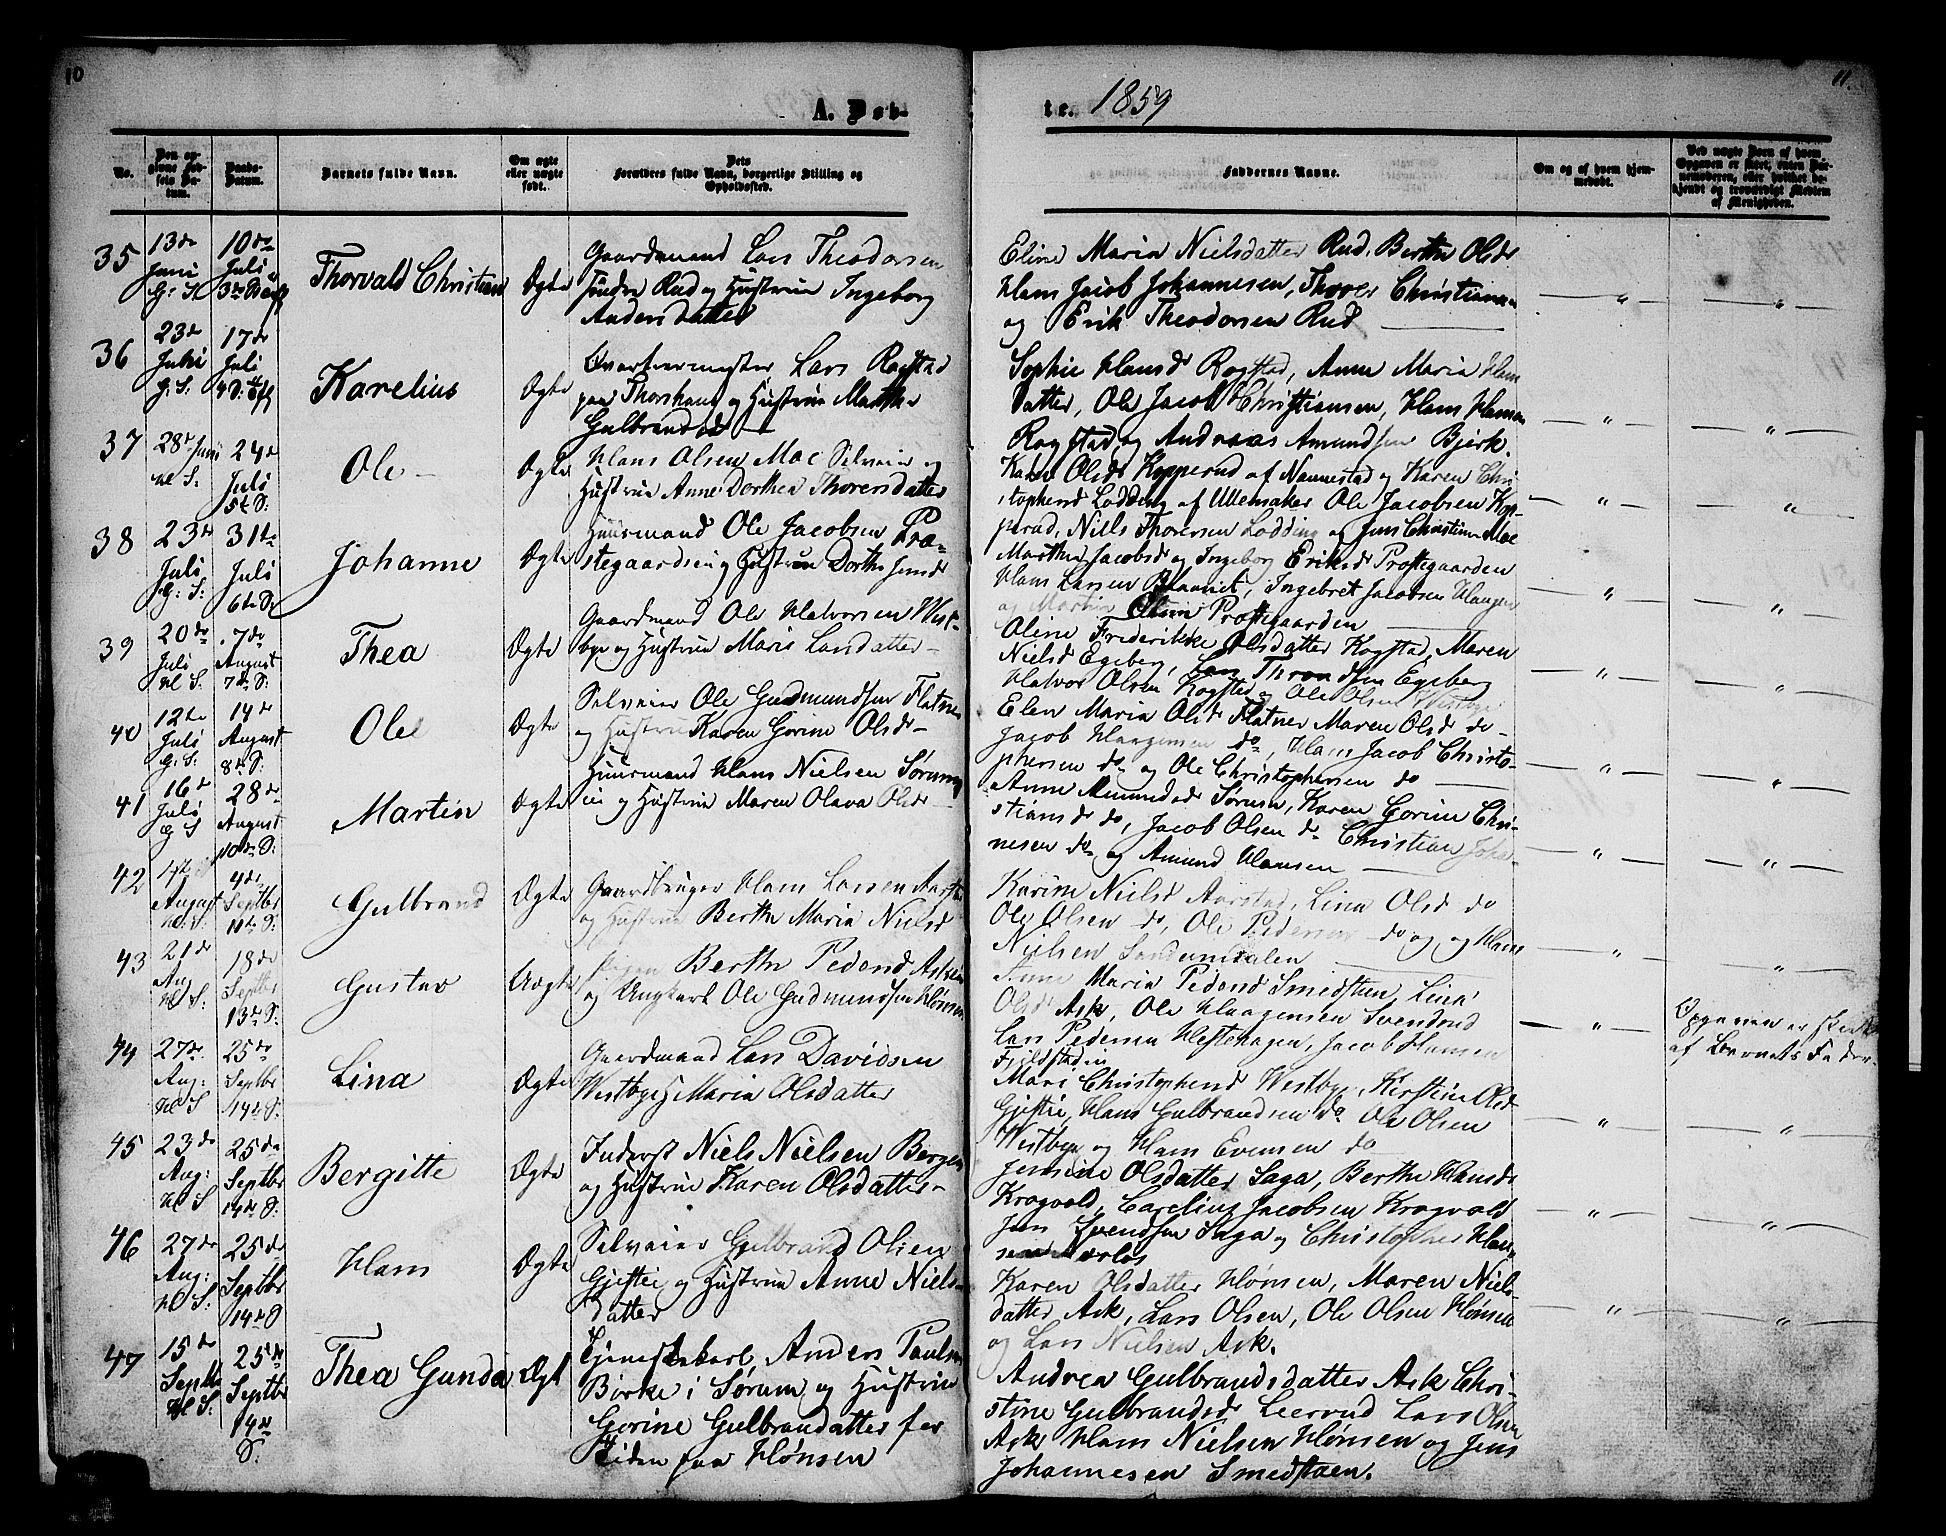 10
11.
A. Døb-
te. 1859
No.
Den op-
givne Fød-
sels Da-
tum.
Daabs-
Datum.
Barnets fulde Navn.
Om ægte
eller uægte
født.
Dets
Forældres fulde Navn, borgerlige Stilling og
Opholdssted.
Faddernes Navne.
Om og af hvem hjem-
medøbt.
Ved uægte Børn af hvem
Opgaven er skeet, enten Bar-
nemoderen, eller hvilket be-
kjendt og troværdigt Medlem
af Menigheden.
35
13de
Juni
G: S.
10de
Juli
Thorvald Christian
Ægte
Gaardmand Lars Theodorsen
Søndre Rud og Hustrue Ingeborg
Andersdatter
Eline Maria Nielsdatter Rud, Berthe Olsdr
Hans Jacob Johannesen, Thorer Christiansen
og Erik Theodorsen Rud
— " —
— " —
36
23de
G. S.
17de
Juli
Karelius
Ægte
Qvarteermester Lars Rogstad
paa Thorshaug og Hustrue Marthe
Gulbrandsd
Sophie Hansdr Rogstad, Anne Maria Hans
datter, Ole Jacob Christiansen, Hans Hansen
Rogstad og Andreas Amundsen Bjerk.
— " —
— " —
37
28de Juni
Hl S:
24de
Juli
5te S:
Ole
Ægte
Hans Olsen Moe Selveier og
Hustrue Anne Dorthea Thorersdatter
Karen Olsdr Kopperud af Nannestad og Karen Chri
stophersd Lødding af Ullensaker Ole Jacobsen Kop-
perud, Niels Thoresen Lødding og Jens Christian Moe
— " —
— " —
38
23de
Juli
G: S.
31te
Juli
6te S:
Johanne
Ægte
Huusmand Ole Jacobsen Præ-
stegaardseie og Hustrue Dorthe Jensdr
Marthe Jacobsdr og Ingeborg Eriksdr Præstegaarden
Hans Larsen Ingebret Jacobsen Haugen
og Martin Olsen Præstegaarden
— " —
— " —
39
20de
Juli
Hl S.
7de
August
7de S:
Thea
Ægte
Gaardmand Ole Halvorsen West-
bye og Hustrue Marie Larsdatter
Oline Frederikke Olsdatter Kogstad, Maren
Nielsd Egeberg, Lars Throndsen Egeberg
Halvor Olsen Kogstad og Ole Olsen Westbye
— " —
— " —
40
12te
Juli
G. S.
14de
August
8de S:
Ole
Ægte
Selveier Ole Gudmundsen Flatner
og Hustrue Karen Gorine Olsdr
Elen Maria Olsdr Flatner Maren Olsd do
Jacob Haagensen do, Hans Jacob Christo-
phersen do og Ole Christophersen do
— " —
— " —
41
16de
Juli
G S
28de
August
10de S:
Martin
Ægte
Huusmand Hans Nielsen Sørum
eie og Hustrue Maren Olava Olsdr
Anne Amundsdr Sørum, Karen Gorine Chri-
stiansdr do, Jacob Olsen do Christian Johan-
nesen do og Amund Hansen
— " —
— " —
42
August
Hl: S:
4de
Septbr
11te S:
Gulbrand
Ægte
Gaardbruger Hans Larsen Aarstad
og Hustrue Berthe Maria Nielsd
Karine Nielsd Aarstad, Lina Olsd do
Ole Olsen do, Ole Pedersen do og og Hans
Nielsen
— " —
— " —
43
21de
Aug
Hl S:
18de
Septbr
13de S:
Gustav
Uægte
Pigen Berthe Pedersd Askeie
og Ungkarl Ole Gudmundsen Hønsen
Anne Maria Pedersd Smedstuen, Lina
Olsd Ask, Ole Haagensen Svendrud
Lars Pedersen Hestehagen, Jacob Hansen
Fjeldstadeie
— " —
Opgaven er skeet
af Barnets Fader.
44
27de
Aug:
Hl S
25de
Septbr
14de S:
Lina
Ægte
Gaardmand Lars Davidsen
Westbye H Maria Olsdatter
Mari Christophersd Westbye, Kirstine Olsd
Gjestie, Hans Gulbrandsen do Ole Olsen
Westbye og Hans Evensen do
— " —
— " —
45
23de
Aug:
Hl S
25de
Septbr
14de S:
Bergitte
Ægte
Inderst Niels Nielsen Berger
og Hustrue Karen Olsdatter
Jensine Olsdatter Saga, Berthe Hansdr
Krogvold, Carelius Jacobsen Krogvold
Jens Svendsen Saga og Christopher Han-
sen
— " —
— " —
46
27de
Aug:
Hl S:
25de
Septbr
14de S
Hans
Ægte
Selveier Gulbrand Olsen
Gjestie og Hustrue Anne Niels-
datter
Karen Olsdatter Hønsen, Maren Niels-
datter Ask, Lars Olsen, Ole Olsen Hønsen
og Lars Nielsen Ask.
— " —
— " —
47
15de
Septbr
Hl S.
25de
Septbr
14de
S.
Thea Gunda
Ægt
Tjenestekarl, Anders Paulsen
Birke i Sørum og Hustrue
Gorine Gulbrandsdatter for
Tiden paa Hønsen
Andrea Gulbrandsdatter Ask Chri-
stine Gulbrandsdr Leerrud Lars Olsen
Ask Hans Nielsen Hønsen og Jens
Johannesen Smedstuen.